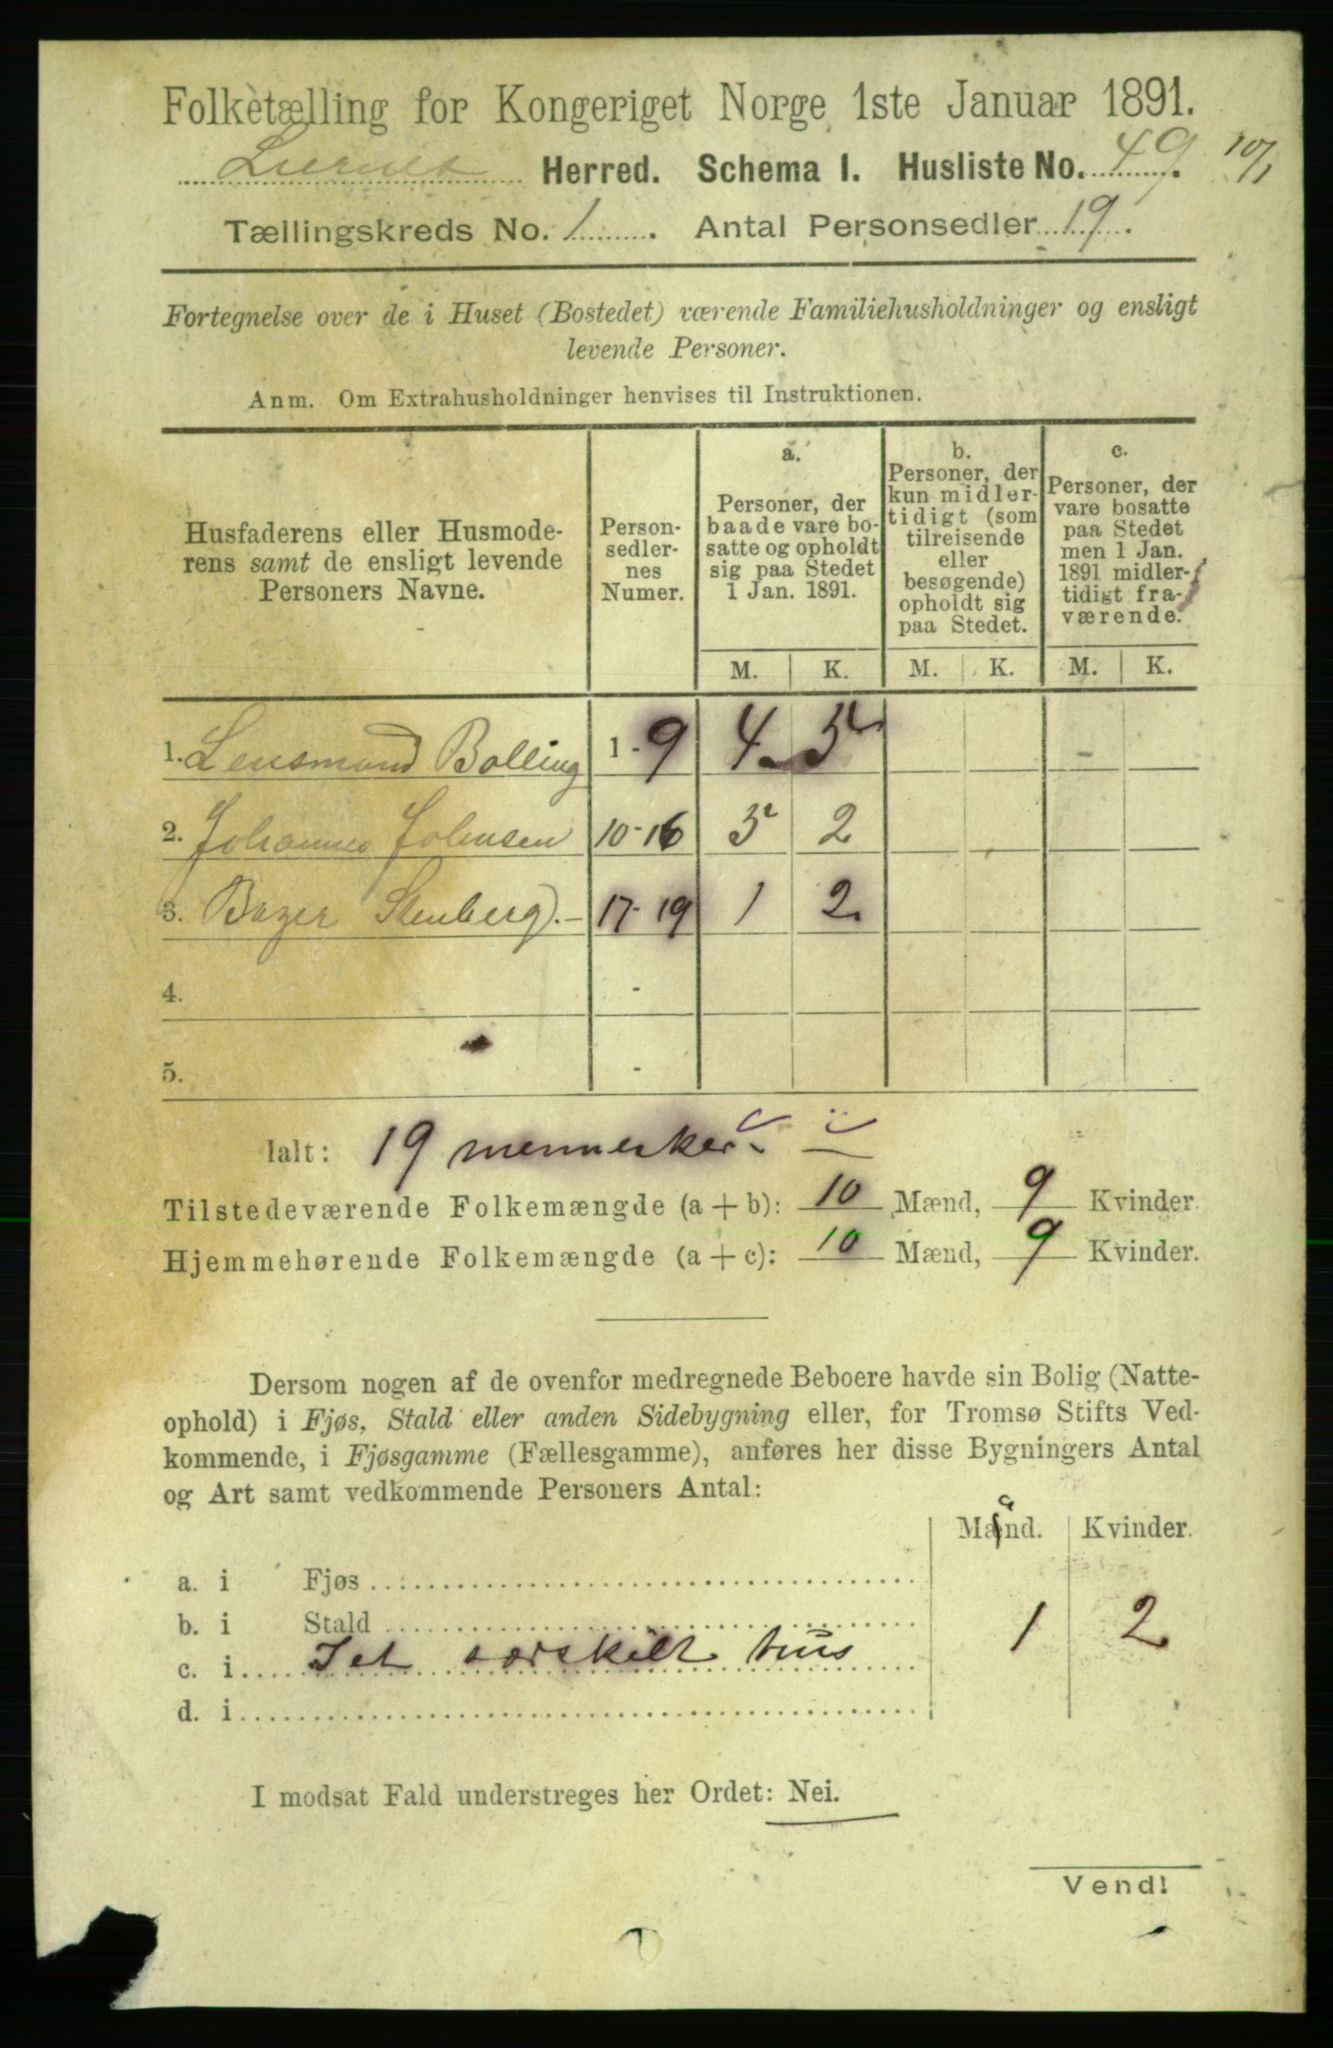 Folketælling for Kongeriget Norge 1ste Januar 1891.
Herred. Schema I. Husliste No. 49. 10/1
Tællingskreds No. 1. Antal Personsedler 19.
Fortegnelse over de i Huset (Bostedet) værende Familiehusholdninger og ensligt
levende Personer.
Anm. Om Extrahusholdninger henvises til Instruktionen.
Husfaderens eller Husmode-
rens samt de ensligt levende
Personers Navne.
Person-
sedler-
nes
Numer.
a.
Personer, der
baade vare bo-
satte og opholdt
sig paa Stedet
1 Jan. 1891.
b.
Personer, der
kun midler-
tidigt (som
tilreisende
eller
besøgende)
opholdt sig
paa Stedet.
c.
Personer, der
vare bosatte
paa Stedet
men 1 Jan.
1891 midler-
tidigt fra-
værende.
M. K. M. K. M. K.
1. Lensmand Bolling 1 - 9 4 5
2. Johannes Johnsen 10-16 5 2
3. Stenberg.- 17-19 1 2
4. -
5. -
Ialt: 19 mennesker
Tilstedeværende Folkemængde (a + b): 10 Mænd, 9 Kvinder.
Hjemmehørende Folkemængde (a + c): 10 Mænd, 9 Kvinder.
Dersom nogen af de ovenfor medregnede Beboere havde sin Bolig (Natte-
ophold) i Fjøs, Stald eller anden Sidebygning eller, for Tromsø Stifts Ved-
kommende, i Fjøsgamme (Fællesgamme), anføres her disse Bygningers Antal
og Art samt vedkommende Personers Antal:
Mænd. Kvinder.
a. i Fjøs
b. i Stald 1 2
c. i I et særskilt hus
d. i
I modsat Fald understreges her Ordet: Nei.
Vend!